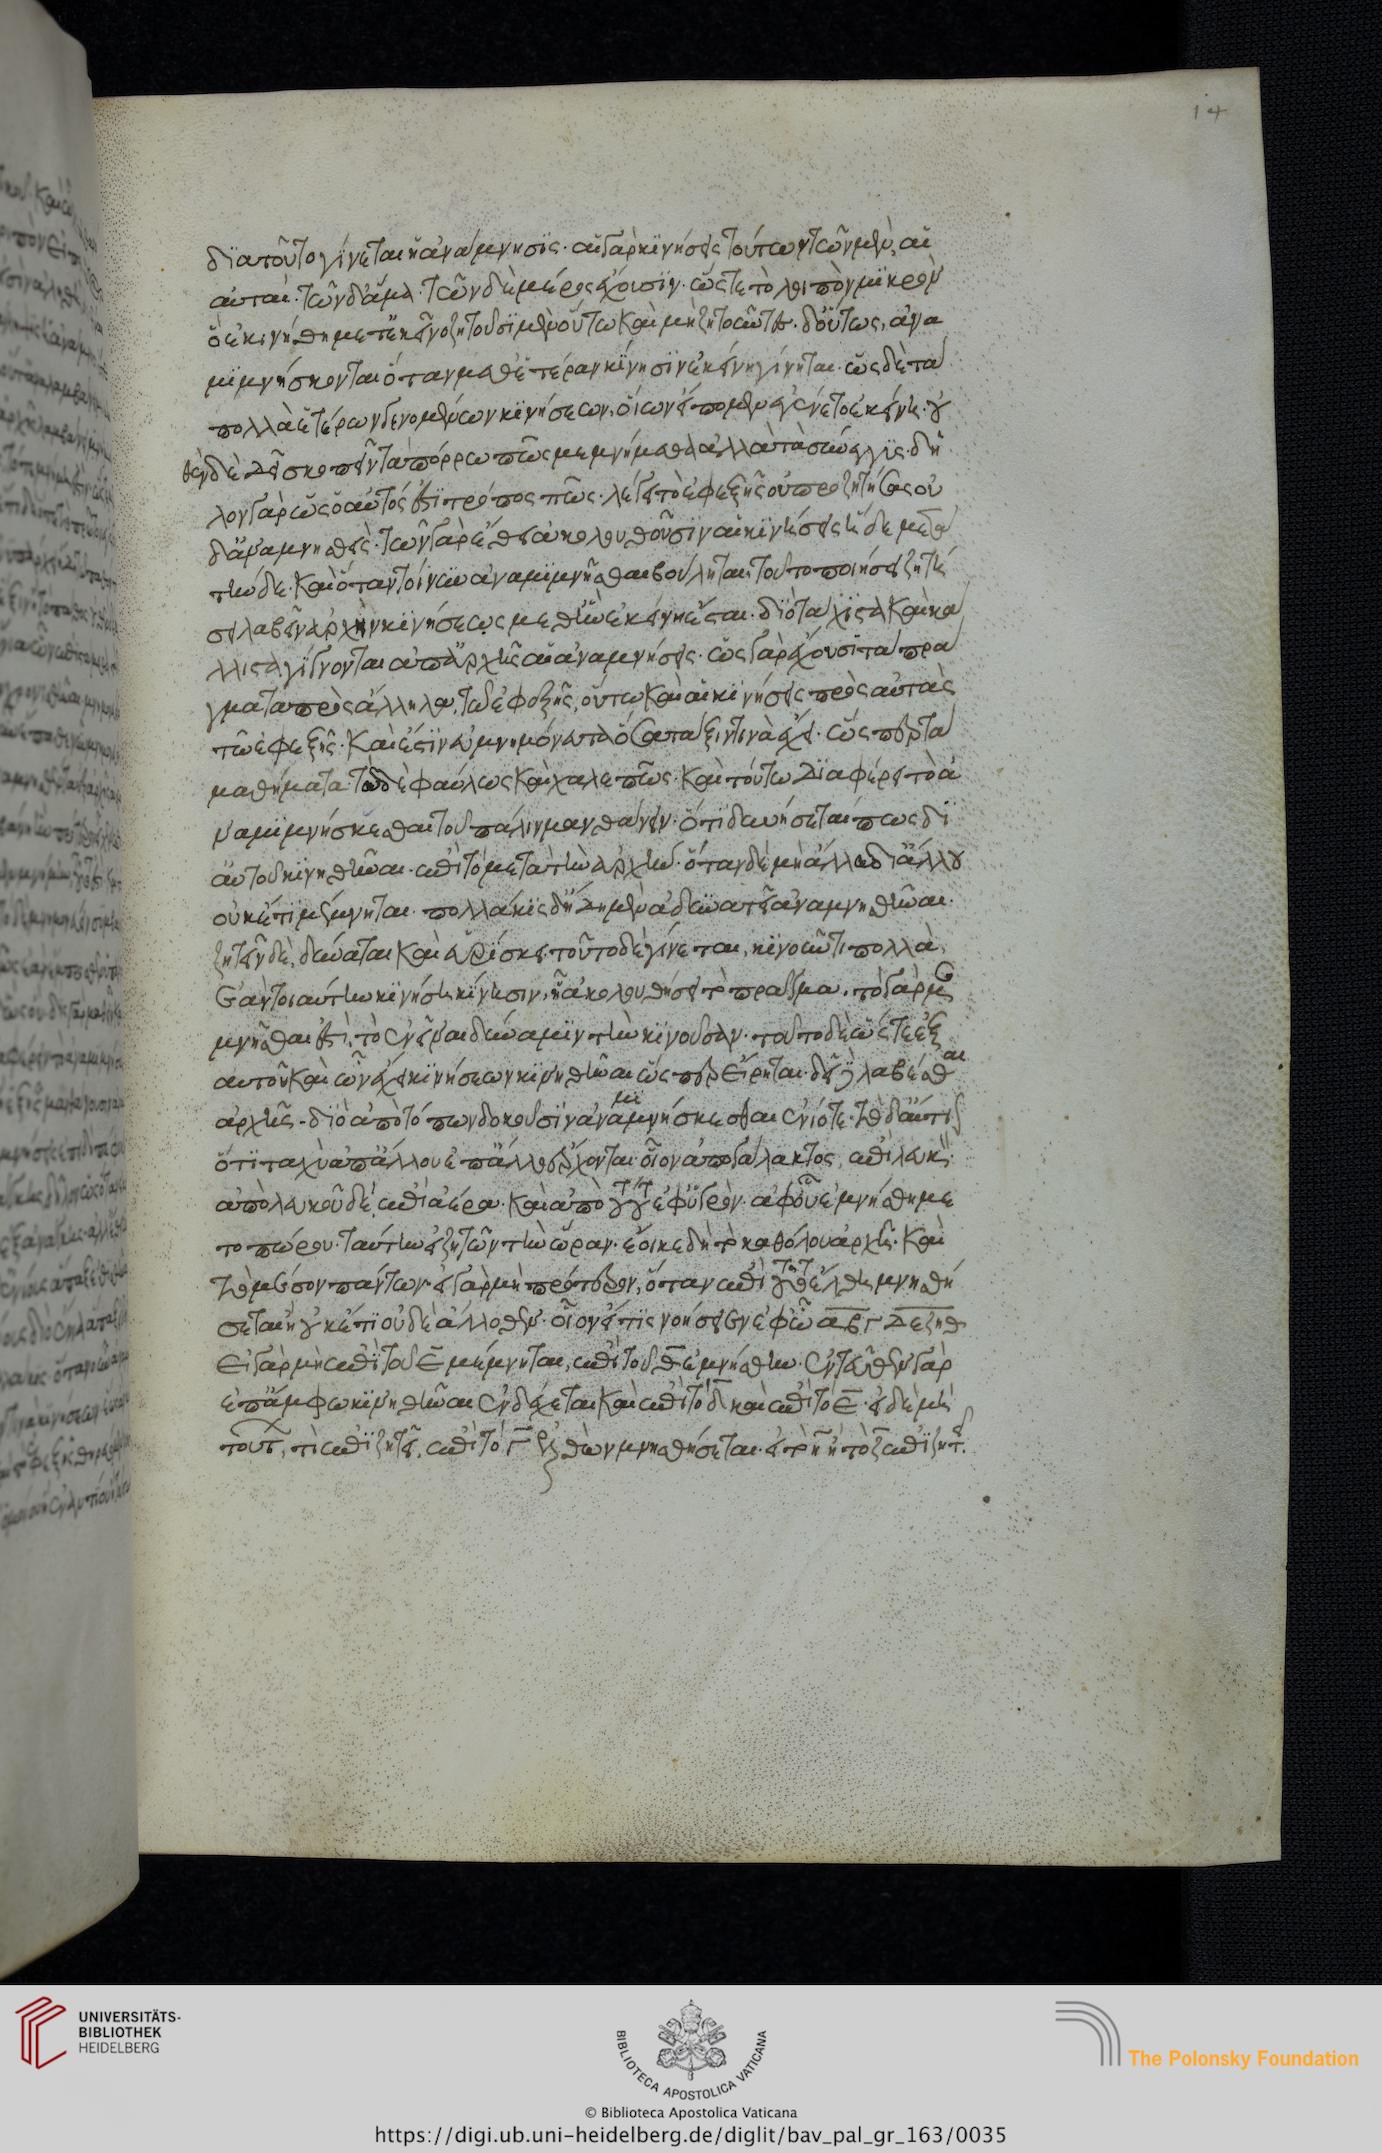 14
διατοῦτο γίνεται ἡ ἀνάμνησις· αἱ γὰρ κινήσεις τούτων τῶν μὲν, αἱ
αὐταί· τῶν δ' ἅμα· τῶν δὲ μέρος ἔχουσιν· ὥστε τὸ λοιπὸν μικρὸν
ὃ ἐκινήθη μετ' ἐκεῖνο ζητοῦσι μὲν οὕτω καὶ μὴ ζητοῦντες δ' οὕτως, ἀνα
μιμνήσκονται ὅταν μεθ' ἑτέραν κίνησιν ἐκείνη γένηται· ὡς δὲ τὰ
πολλὰ ἑτέρων γενομένων κινήσεων, οἵων εἴπομεν ἐγένετο ἐκείνη· οὐ
θὲν δὲ δεῖ σκοπεῖν τὰ πόρρω πῶς μεμνήμεθα ἀλλὰ τὰ σύνεγγυς· δῆ
λον γὰρ ὡς ὁ αὐτός ἐστι τρόπος πῶς· λέγει τὸ ἐφεξῆς οὐ προζητήσας οὐ
δ' ἀναμνησθείς· τῶν γὰρ ἔθει ἀκολουθοῦσιν αἱ κινήσεις ἥδε μετὰ
τήνδε· καὶ ὅταν τοίνυν ἀναμιμνήσκεσθαι βούληται, τοῦτο ποιήσει ζητή
σει λαβεῖν ἀρχὴν κινήσεως μεθ' ἣν ἐκείνη ἔσται· διὸ τάχιστα καὶ κά
λλιστα γίγνονται ἀπ' ἀρχῆς αἱ ἀναμνήσεις· ὡς γὰρ ἔχουσι τὰ πρά
γματα πρὸς ἄλληλα, τῷ ἐφεξῆς, οὕτω καὶ αἱ κινήσεις πρὸς αὐτὰς
τῷ ἐφεξῆς· καὶ ἔστιν εὐμνημόνευτα ὅσα τάξιν τινὰ ἔχει· ὥσπερ τὰ
μαθήματα· τὰ δὲ φαύλως καὶ χαλεπῶς· καὶ τούτω διαφέρει τὸ ἀ
ναμιμνήσκεσθαι τοῦ πάλιν μανθάνειν· ὅτι δυνήσεταί πως δι'
αὐτοῦ κινηθῆναι ἐπὶ τὸ μετὰ τὴν ἀρχήν· ὅταν δὲ μὴ ἀλλὰ δι' ἄλλου
οὐκέτι μέμνηται· πολλάκις δ' ἤδη μὲν ἀδυνατεῖ ἀναμνησθῆναι·
ζητεῖν δὲ, δύναται καὶ εὑρίσκει· τοῦτο δὲ γίνεται, κινοῦντι πολλὰ·
ἕως ἂν τοιαύτην κινήσῃ κίνησιν, ᾗ ἀκολουθήσει τὸ πρᾶγμα, τὸ γὰρ με
μνῆσθαι ἐστὶ, τὸ ἐνεῖναι δυνάμει τὴν κινοῦσαν· τοῦτο δὲ ὥστε ἐξ
αὐτοῦ καὶ ὧν ἔχει κινήσεων κινηθῆναι ὥσπερ εἴρηται· δεῖ δὲ λαβέσθαι
ἀρχῆς· διὸ ἀπὸ τόπων δοκοῦσιν ἀναμιμνήσκεσθαι ἐνίοτε· τὸ δ' αἴτιον
ὅτι ταχὺ ἀπ' ἄλλου ἐπ' ἄλλο ἔρχονται· οἷον ἀπὸ γάλακτος, ἐπὶ λευκόν·
ἀπὸ λευκοῦ δὲ, ἐπὶ ἀέρα· καὶ ἀπὸ τούτου ἐφ' ὑγρὸν· ἀφ' οὗ ἐμνήσθη με
τοπώρου· ταύτην ἐζήτων τὴν ὥραν· ἔοικε δὴ τὸ καθόλου ἀρχῇ· καὶ
τὸ μέσον πάντων· εἰ γὰρ μὴ πρότερον, ὅταν ἐπὶ τοῦτο ἔλθῃ μνησθή
σεται, ἢ οὐκέτι οὐδὲ ἄλλοθεν· οἷον εἴ τις νοήσειεν ἐφ' ὧν Α Β Γ Δ Ε Ζ Η Θ
εἰ γὰρ μὴ ἐπὶ τοῦ Ε μέμνηται, ἐπὶ τοῦ Θ ἐμνήσθη· ἐντεῦθεν γὰρ
ἐπ' ἄμφω κινηθῆναι ἐνδέχεται καὶ ἐπὶ τὸ Δ καὶ ἐπὶ τὸ Ε· εἰ δὲ μὴ
τούτων, τι ἐπιζητεῖ, ἐπὶ τὸ Γ ἐλθὼν μνησθήσεται· εἰ τὸ Η ἢ τὸ Ζ ἐπιζητεῖ.
UNIVERSITÄTS-
BIBLIOTHEK
HEIDELBERG
BIBLIOTECA APOSTOLICA VATICANA
The Polonsky Foundation
© Biblioteca Apostolica Vaticana
https://digi.ub.uni-heidelberg.de/diglit/bav_pal_gr_163/0035